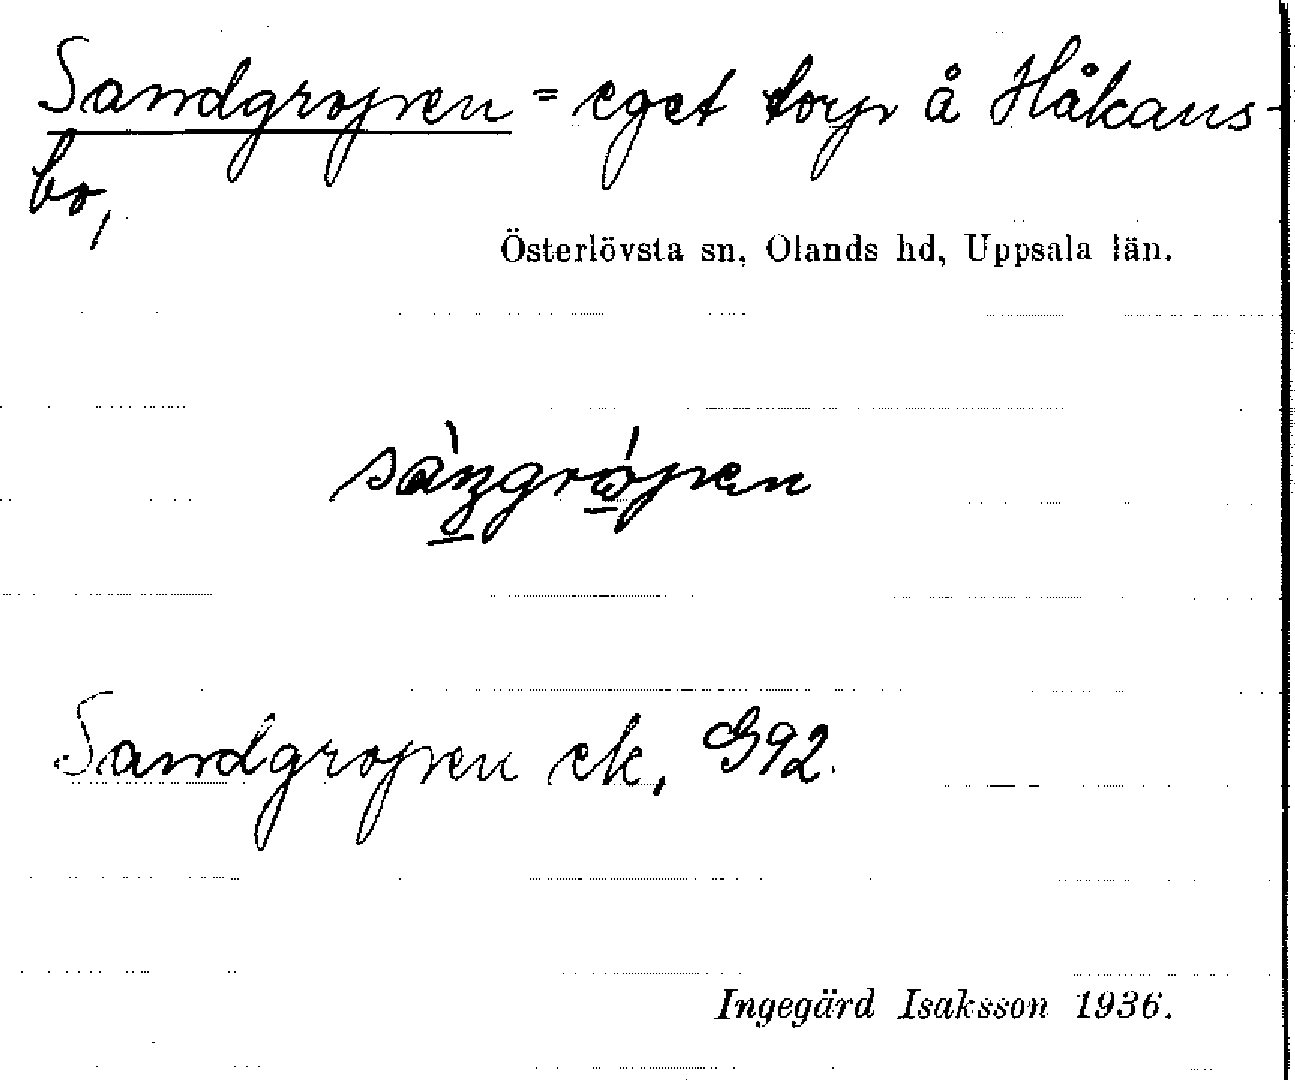 Sandgropen = eget torp å Håkans-
bo,
Österlövsta sn, Olands hd, Uppsala län.
Sandgropen ek, G92.
Ingegärd Isaksson 1936.